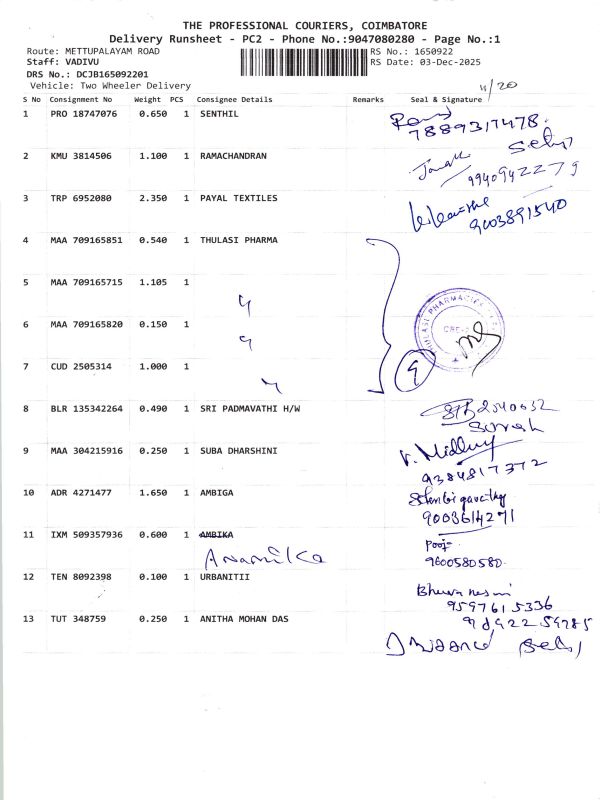 THE PROFESSIONAL COURIERS, COIMBATORE
Delivery Runsheet - PC2 - Phone No.:9047080280 - Page No.:1
Route: METTUPALAYAM ROAD RS No.: 1650922
Staff: VADIVU RS Date: 03-Dec-2025
DRS No.: DCJB165092201
Vehicle: Two Wheeler Delivery
S No Consignment No Weight PCS Consignee Details Remarks Seal & Signature
1 PRO 18747076 0.650 1 SENTHIL
7889317478.
2 KMU 3814506 1.100 1 RAMACHANDRAN
9940942279
3 TRP 6952080 2.350 1 PAYAL TEXTILES
9003891540
4 MAA 709165851 0.540 1 THULASI PHARMA
5 MAA 709165715 1.105 1
6 MAA 709165820 0.150 1
7 CUD 2505314 1.000 1
8 BLR 135342264 0.490 1 SRI PADMAVATHI H/W
Suresh
9 MAA 304215916 0.250 1 SUBA DHARSHINI
9384817372
10 ADR 4271477 1.650 1 AMBIGA
9003614271
11 IXM 509357936 0.600 1 AMBIKA
Anamika
9600580580.
12 TEN 8092398 0.100 1 URBANITII
9597615336
13 TUT 348759 0.250 1 ANITHA MOHAN DAS